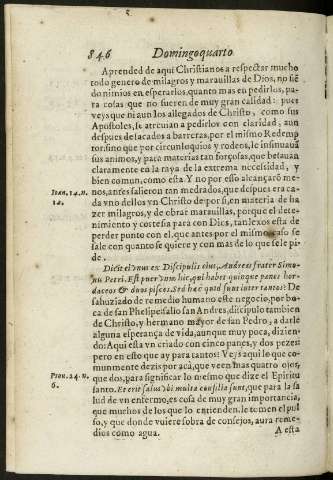 846 Domingo quarto
Aprended de aqui Christianos a respectar mucho
todo genero de milagros y marauillas de Dios, no siẽ
do nimios en esperarlos, quanto mas en pedirlos, pa
ra cosas que no fueren de muy gran calidad: pues
veys que ni aun los allegados de Christo, como sus
Apostoles, se atreuian a pedirlos con claridad, aun
despues de lacados a barreras, por el mismo Redemp
tor: sino que por circunloquios y rodeos, le insinuauã
sus animos, y para materias tan forçosas, que betauan
claramente en la raya de la extrema necessidad, y
bien comun, como esta. Y no por esso alcançarõ me-
nos, antes salieron tan medrados, que despues era ca-
da vno dellos vn Christo de por si, en materia de ha
zer milagros, y de obrar marauillas, porque el dete-
nimiento y cortesia para con Dios, tan lexos esta de
perder punto con el, que antes por el mismo caso se
sale con quanto se quiere y con mas de lo que se le pi-
de.
Ioan. 14. n.
12.
Dicit ei vnus ex Discipulis eius, Andreas frater Simo-
nis Petri. Est puer vnus hic, qui habet quinque panes hor-
daceos & duos pisces. Sed hæc quid sunt inter tantos? De
sahuziado de remedio humano este negocio, por bo
ca de san Phelipe: salio san Andres, discipulo tambien
de Christo, y hermano mayor de san Pedro, a darle
alguna esperança de vida, aunque muy poca, dizien-
do: Aqui esta vn criado con cinco panes, y dos pezes:
pero en esto que ay para tantos? Veys aqui lo que co-
munmente dezis por acá, que veen mas quatro ojos,
que dos, para significar lo mesmo que dize el Espiritu
santo. Et erit salus vbi multa consilia sunt, que para la sa
lud de vn enfermo, es cosa de muy gran importancia,
que muchos de los que lo entienden, le tomen el pul
so, y que donde vuiere sobra de consejos, aura reme-
dios como agua.
Prou. 24. n.
6.
A esta